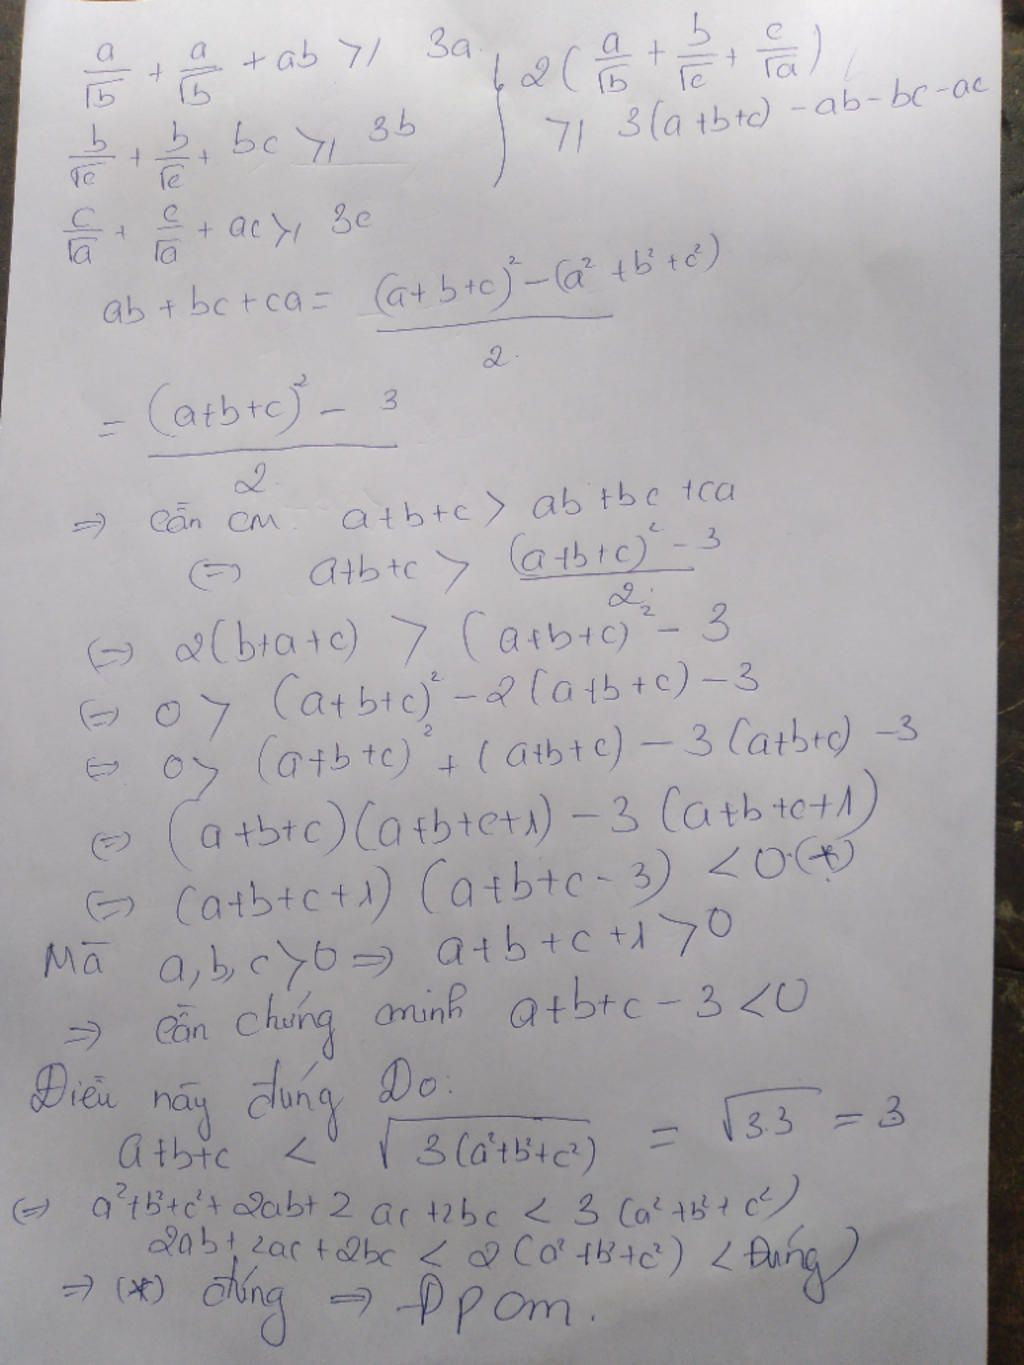 a/√b + a/√b + ab ⩾ 3a } 2(a/√b + b/√c + c/√a)
b/√c + b/√c + bc ⩾ 3b ⩾ 3(a+b+c) - ab - bc - ac
c/√a + c/√a + ac ⩾ 3c
ab + bc + ca = ((a+b+c)² - (a² + b² + c²))/2
= ((a+b+c)² - 3)/2
⇒ cần cm a+b+c > ab + bc + ca
⇔ a+b+c > ((a+b+c)² - 3)/2
⇔ 2(b+a+c) > (a+b+c)² - 3
⇔ 0 > (a+b+c)² - 2(a+b+c) - 3
⇔ 0 > (a+b+c)² + (a+b+c) - 3(a+b+c) - 3
⇔ (a+b+c)(a+b+c+1) - 3(a+b+c+1)
⇔ (a+b+c+1)(a+b+c-3) < 0 (*)
Mà a, b, c > 0 ⇒ a+b+c+1 > 0
⇒ cần chứng minh a+b+c-3 < 0
Điều này đúng Do:
a+b+c < √(3(a²+b²+c²)) = √3.3 = 3
⇔ a²+b²+c²+2ab+2ac+2bc < 3(a²+b²+c²)
2ab+2ac+2bc < 2(a²+b²+c²) < Đúng)
⇒ (*) đúng ⇒ Đpcm.